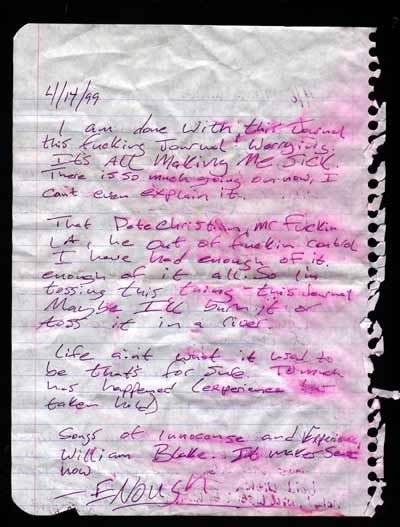 4/14/99
I am done with this Journal
this fucking Journal Worrying.
It's All Making Me Sick.
There is so much going on now, I
can't even explain it.
That Pete Christian, Mr Fuckin
LA, he out of fuckin control
I have had enough of it.
enough of it all. So Im
tossing this thing - this Journal
Maybe I'll burn it or
toss it in a river.
life ain't what it used to
be that's for sure. To much
has happened (experience has
taken hold)
Songs of Innocense and Experience,
William Blake. It makes sense
now
- ENOUGH